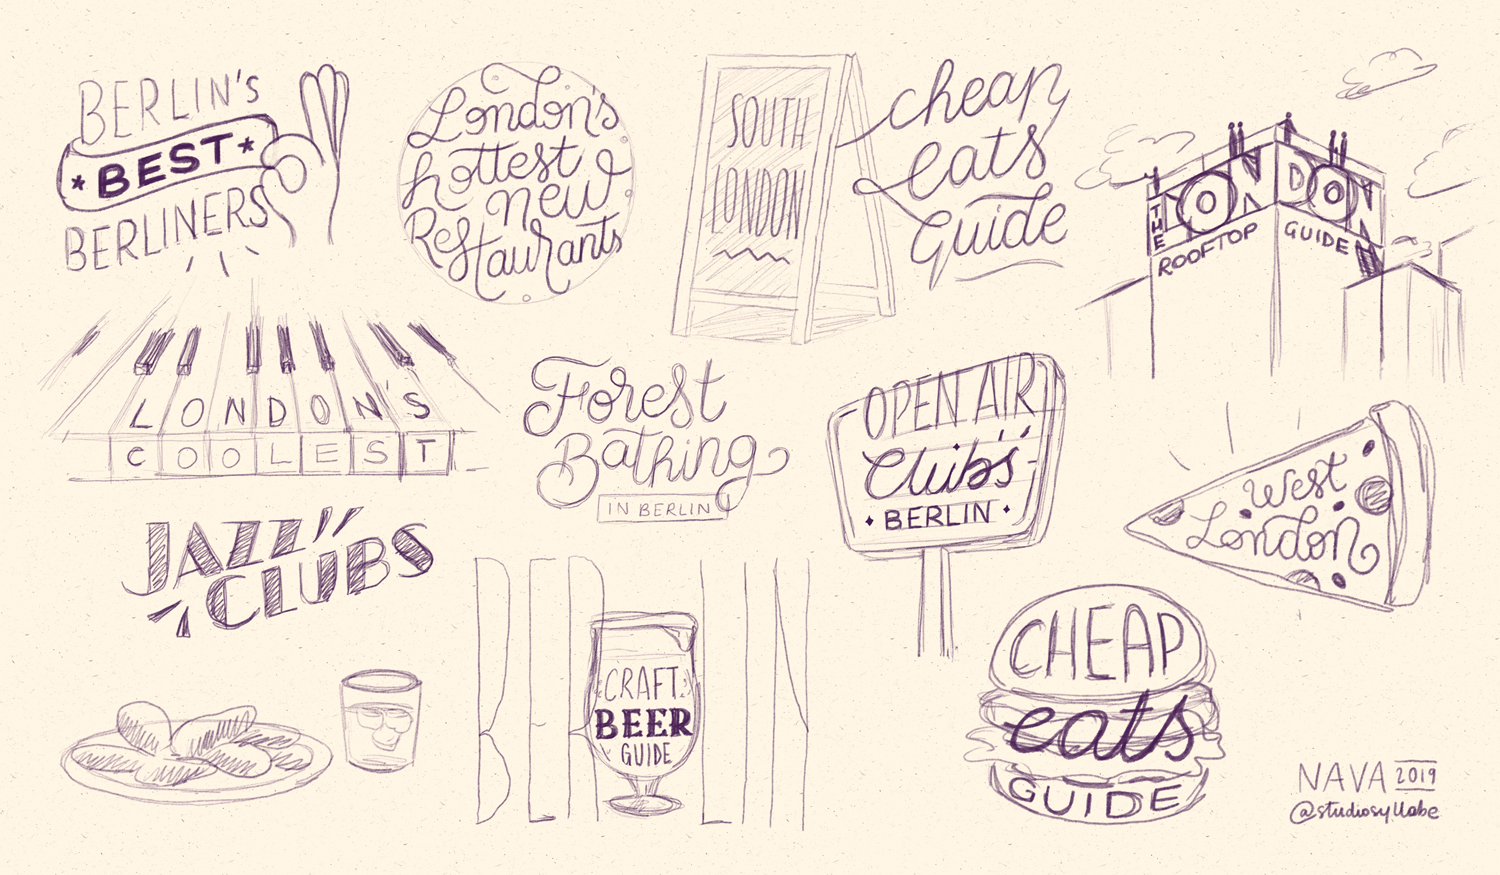 BERLIN'S
*BEST*
BERLINERS
London's
hottest
new
Restaurants
SOUTH
LONDON
cheap
eats
Guide
THE
LONDON
ROOFTOP
GUIDE
LONDON'S
COOLEST
JAZZ
CLUBS
Forest
Bathing
IN BERLIN
OPEN AIR
Clubs
BERLIN
West
London
BERLIN
CRAFT
BEER
GUIDE
CHEAP
eats
GUIDE
NAVA 2019
@studiosyllabe